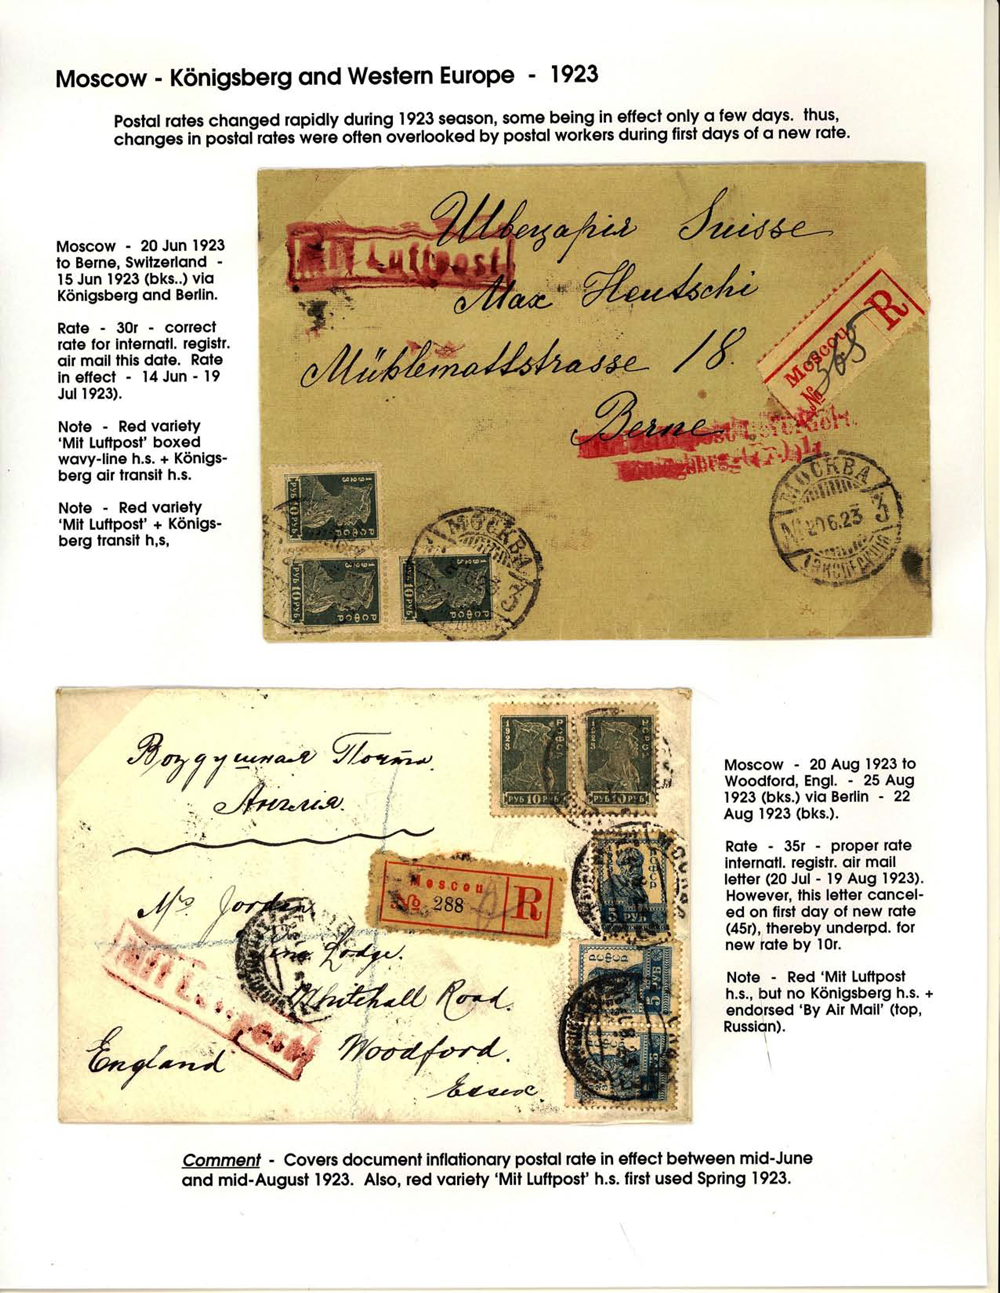 Moscow - Königsberg and Western Europe - 1923
Postal rates changed rapidly during 1923 season, some being in effect only a few days. thus,
changes in postal rates were often overlooked by postal workers during first days of a new rate.
Moscow - 20 Jun 1923
to Berne, Switzerland -
15 Jun 1923 (bks..) via
Königsberg and Berlin.
Rate - 30r - correct
rate for internatl. registr.
air mail this date. Rate
in effect - 14 Jun - 19
Jul 1923).
Note - Red variety
'Mit Luftpost' boxed
wavy-line h.s. + Königs-
berg air transit h.s.
Note - Red variety
'Mit Luftpost' + Königs-
berg transit h,s,
Mit Luftpost
Швецарія Suisse
Max Heutschi
Mühlemattstrasse 18.
Berne
Moscou
№ 365
R
МОСКВА
20.6.23
3
1923
10 РУБ
РСФСР
1923
10 РУБ
РСФСР
1923
10 РУБ
РСФСР
МОСКВА
3
Воздушная Почта.
Англия.
Mrs Jordan
Lodge.
Whitehall Road.
Woodford.
Essex.
England
Mit Luftpost
Moscou
№ 288
R
1923
РСФСР
РУБ 10 РУБ
1923
РСФСР
РУБ 10 РУБ
5 РУБ
РСФСР
РСФСР
5 РУБ
Moscow - 20 Aug 1923 to
Woodford, Engl. - 25 Aug
1923 (bks.) via Berlin - 22
Aug 1923 (bks.).
Rate - 35r - proper rate
internatl. registr. air mail
letter (20 Jul - 19 Aug 1923).
However, this letter cancel-
ed on first day of new rate
(45r), thereby underpd. for
new rate by 10r.
Note - Red 'Mit Luftpost
h.s., but no Königsberg h.s. +
endorsed 'By Air Mail' (top,
Russian).
Comment - Covers document inflationary postal rate in effect between mid-June
and mid-August 1923. Also, red variety 'Mit Luftpost' h.s. first used Spring 1923.